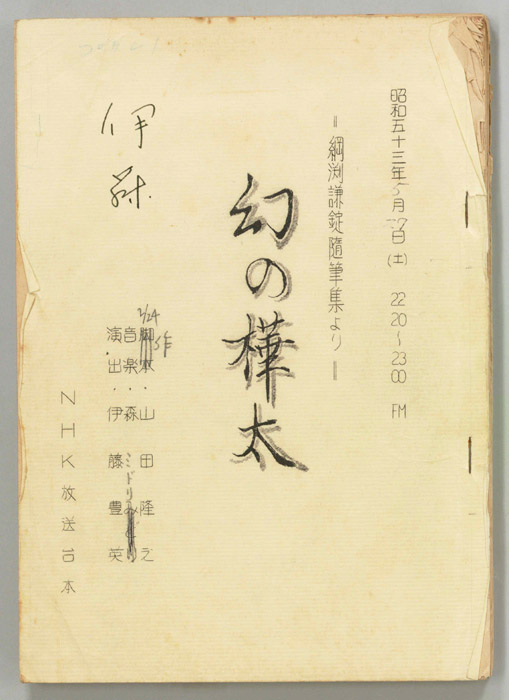 昭和五十三年5月27日(土) 22 20～23 00 FM
＝綱淵謙錠随筆集より＝
幻の樺太
脚本・山田隆之
作
音楽・森ミドリ
演出・伊藤豊英
NHK放送台本
伊藤